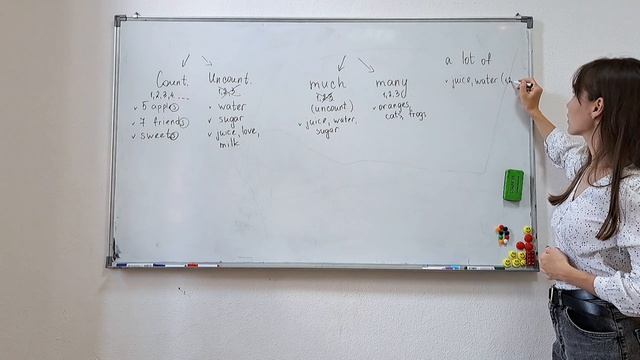 Count.
1,2,3,4...
✓ 5 apples
✓ 7 friends
✓ sweets
Uncount.
1,2,3
• water
✓ sugar
✓ juice, love,
milk
much
1,2,3
(uncount)
✓ juice, water,
sugar
many
1,2,3
✓ oranges,
cats, frogs
a lot of
✓ juice, water